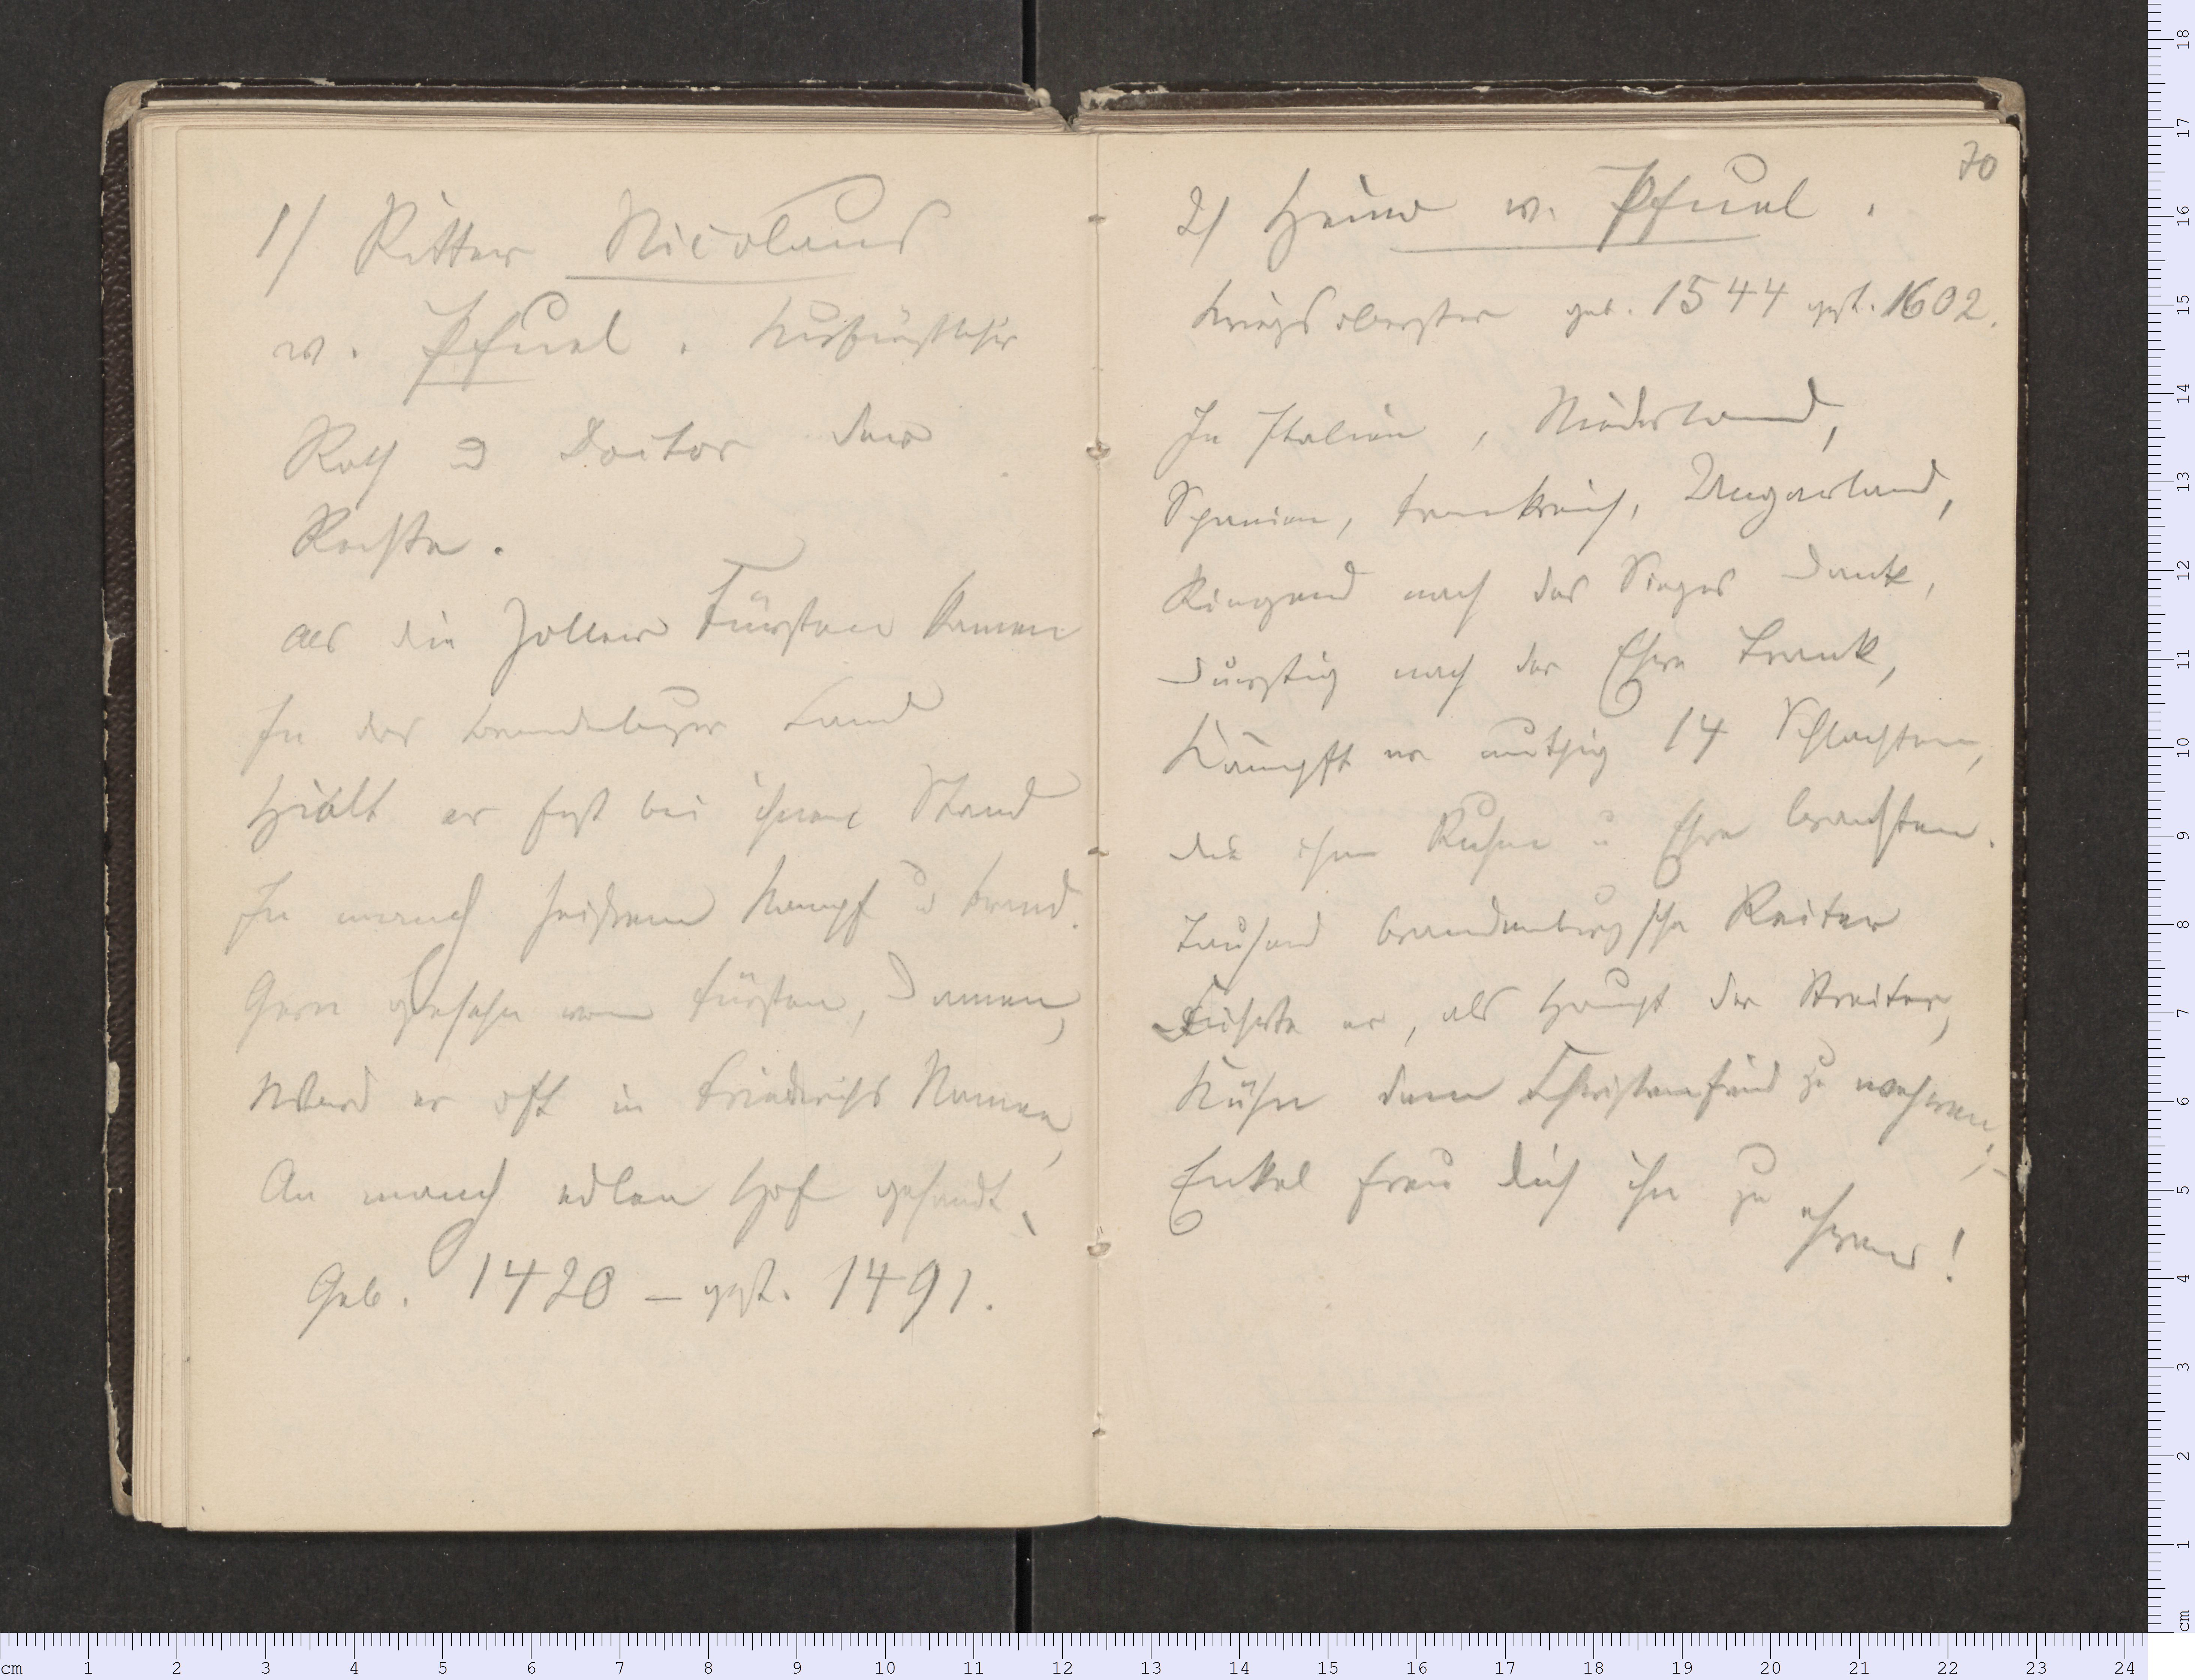 1/ Ritter Nicolaus
v. Pfuel. Kurfürstlicher
Rath u Doctor der
Rechte.
Als die Zollern Fürsten kamen
In das Brandenburger Land
Hielt er fest bei ihnen Stand
In manch heißem Kampf u Brand.
Gern gesehn von Fürsten, Damen,
Ward er oft in Friedrichs Namen,
An manch edlen Hof gesandt.
Geb. 1420 – gest. 1491.
70
2/ Heino v. Pfuel.
Kriegsoberster geb. 1544 gest. 1602.
In Italien, Niederland,
Spanien, Frankreich, Ungarland,
Ringend nach des Sieges Dank,
Durstig nach der Ehre Trank,
Kämpft er muthig 14 Schlachten,
die ihm Ruhm u Ehre brachten.
Tausend brandenburgsche Reiter
Führte er, als Haupt der Streiter,
Kühn dem Christenfeind zu wehren;–
Enkel freu dich ihn zu
ehren!
1 2 3 4 5 6 7 8 9 10 11 12 13 14 15 16 17 18 cm
cm 1 2 3 4 5 6 7 8 9 10 11 12 13 14 15 16 17 18 19 20 21 22 23 24